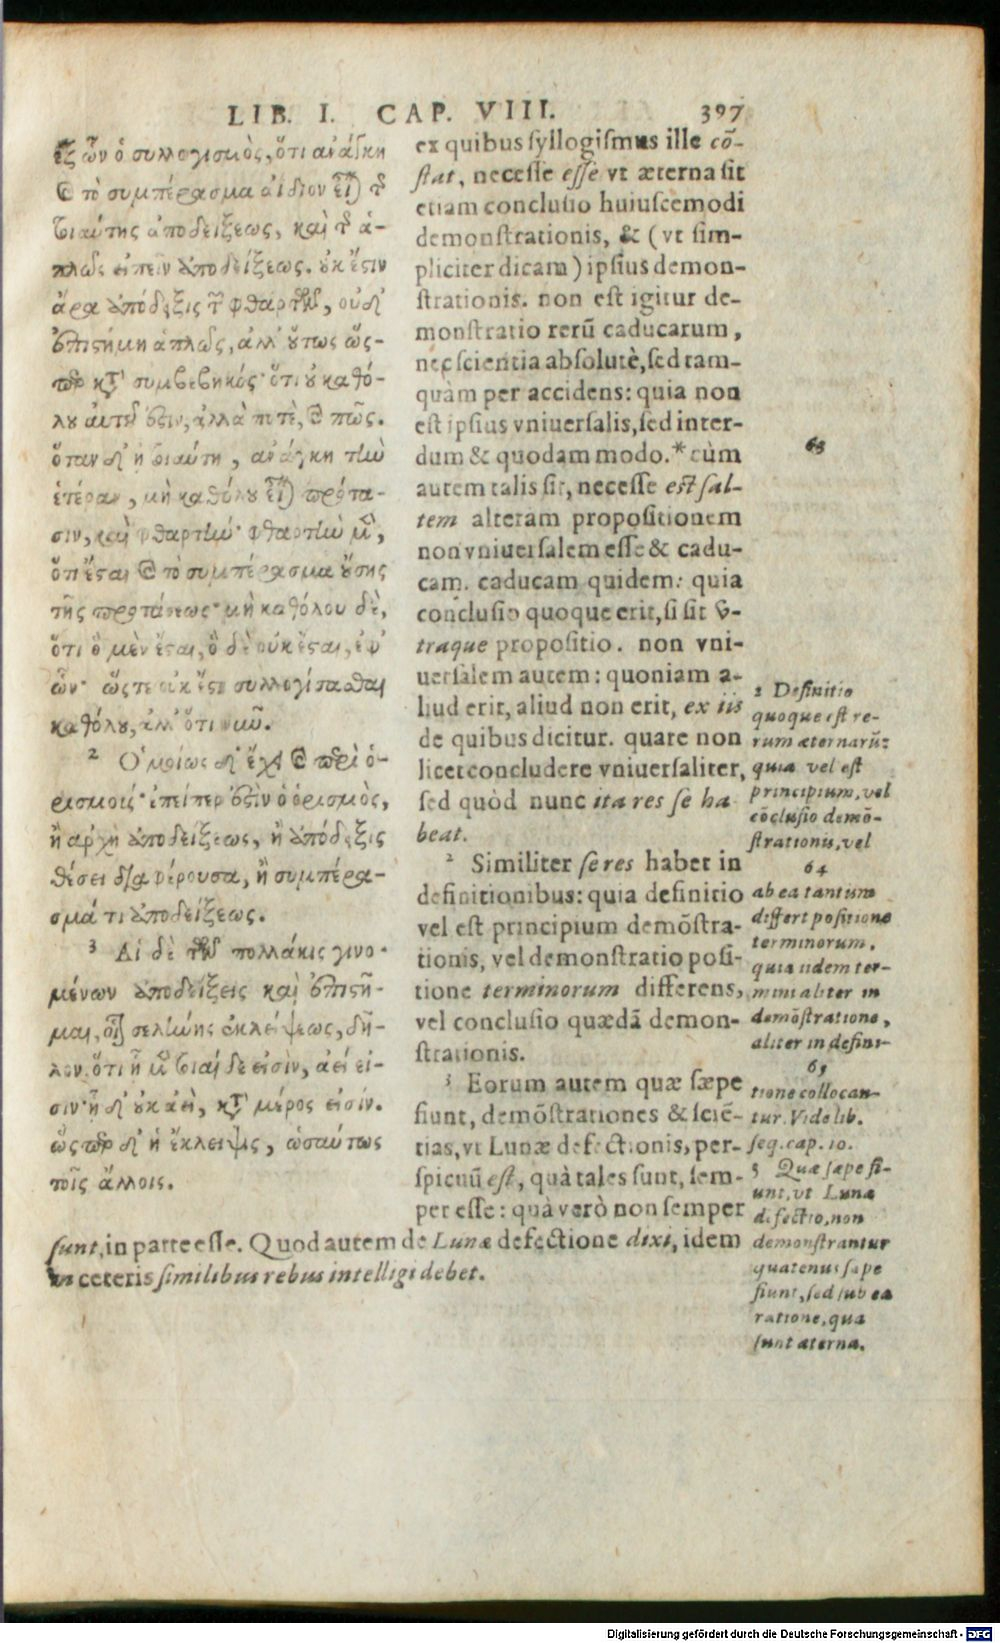 LIB. I. CAP. VIII. 397
ἐξ ὧν ὁ συλλογισμὸς, ὅτι ἀνάγκη
καὶ τὸ συμπέρασμα ἀΐδιον εἶναι τῆς
τοιαύτης ἀποδείξεως, καὶ τῆς ἁ-
πλῶς εἰπεῖν ἀποδείξεως. οὐκ ἔστιν
ἄρα ἀπόδειξις τῶν φθαρτῶν, οὐδ'
ἐπιστήμη ἁπλῶς, ἀλλ' οὕτως ὥσ-
περ κατὰ συμβεβηκός· ὅτι οὐ καθό-
λου αὐτοῦ ἐστιν, ἀλλὰ ποτὲ, καὶ πῶς.
ὅταν δ' ᾖ τοιαύτη, ἀνάγκη τὴν
ἑτέραν, μὴ καθόλου εἶναι πρότα-
σιν, καὶ φθαρτήν· φθαρτὴν μὲν,
ὅτι ἔσται καὶ τὸ συμπέρασμα οὔσης
τῆς προτάσεως· μὴ καθόλου δὲ,
ὅτι ὃ μὲν ἔσται, ὃ δὲ οὐκ ἔσται, ἐφ'
ὧν· ὥστε οὐκ ἔστι συλλογίσασθαι
καθόλου, ἀλλ' ὅτι νῦν.
2 Ὁμοίως δ' ἔχει καὶ περὶ ὁ-
ρισμούς· ἐπείπερ ἐστὶν ὁ ὁρισμὸς,
ἢ ἀρχὴ ἀποδείξεως, ἢ ἀπόδειξις
θέσει διαφέρουσα, ἢ συμπέρα-
σμά τι ἀποδείξεως.
3 Αἱ δὲ τῶν πολλάκις γινο-
μένων ἀποδείξεις καὶ ἐπιστῆ-
μαι, οἷον σελήνης ἐκλείψεως, δῆ-
λον, ὅτι ᾗ μὲν τοιαίδε εἰσὶν, ἀεί εἰ-
σιν· ᾗ δ' οὐκ ἀεὶ, κατὰ μέρος εἰσίν.
ὥσπερ δ' ἡ ἔκλειψις, ὡσαύτως
τοῖς ἄλλοις.
ex quibus syllogismus ille cõ-
stat, necesse esse vt æterna sit
etiam conclusio huiuscemodi
demonstrationis, & (vt sim-
pliciter dicam) ipsius demon-
strationis. non est igitur de-
monstratio rerũ caducarum,
nec scientia absolutè, sed tam-
quàm per accidens: quia non
est ipsius vniuersalis, sed inter-
dum & quodam modo.* cùm
autem talis sit, necesse est sal-
tem alteram propositionem
non vniuersalem esse & cadu-
cam. caducam quidem: quia
conclusio quoque erit, si sit v-
traque propositio. non vni-
uersalem autem: quoniam a-
liud erit, aliud non erit, ex iis
de quibus dicitur. quare non
licet concludere vniuersaliter,
sed quòd nunc ita res se ha
beat.
2 Similiter se res habet in
definitionibus: quia definitio
vel est principium demõstra-
tionis, vel demonstratio posi-
tione terminorum differens,
vel conclusio quædã demon-
strationis.
3 Eorum autem quæ sæpe
fiunt, demõstrationes & sciẽ-
tias, vt Lunæ defectionis, per-
spicuũ est, quà tales sunt, sem-
per esse: quà verò non semper
sunt, in parte esse. Quod autem de Lunæ defectione dixi, idem
in ceteris similibus rebus intelligi debet.
63
2 Definitio
quoque est re-
rum æternarũ:
quia vel est
principium, vel
cõclusio demõ-
strationis, vel
64
ab ea tantum
differt positione
terminorum.
quia iidem ter-
mini aliter in
demõstratione,
aliter in defini-
65
tione collocan-
tur. Vide lib.
seq. cap. 10.
3 Quæ sæpe fi-
unt, vt Lunæ
defectio, non
demonstrantur
quatenus sæpe
fiunt, sed sub ea
ratione, qua
sunt æterna.
Digitalisierung gefördert durch die Deutsche Forschungsgemeinschaft - DFG